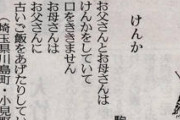 けんか
お父さんとお母さんは
けんかをしていて
口をききません
お母さんは
お父さんに
古いご飯をあげたりしてい
(埼玉県川島町・小見野